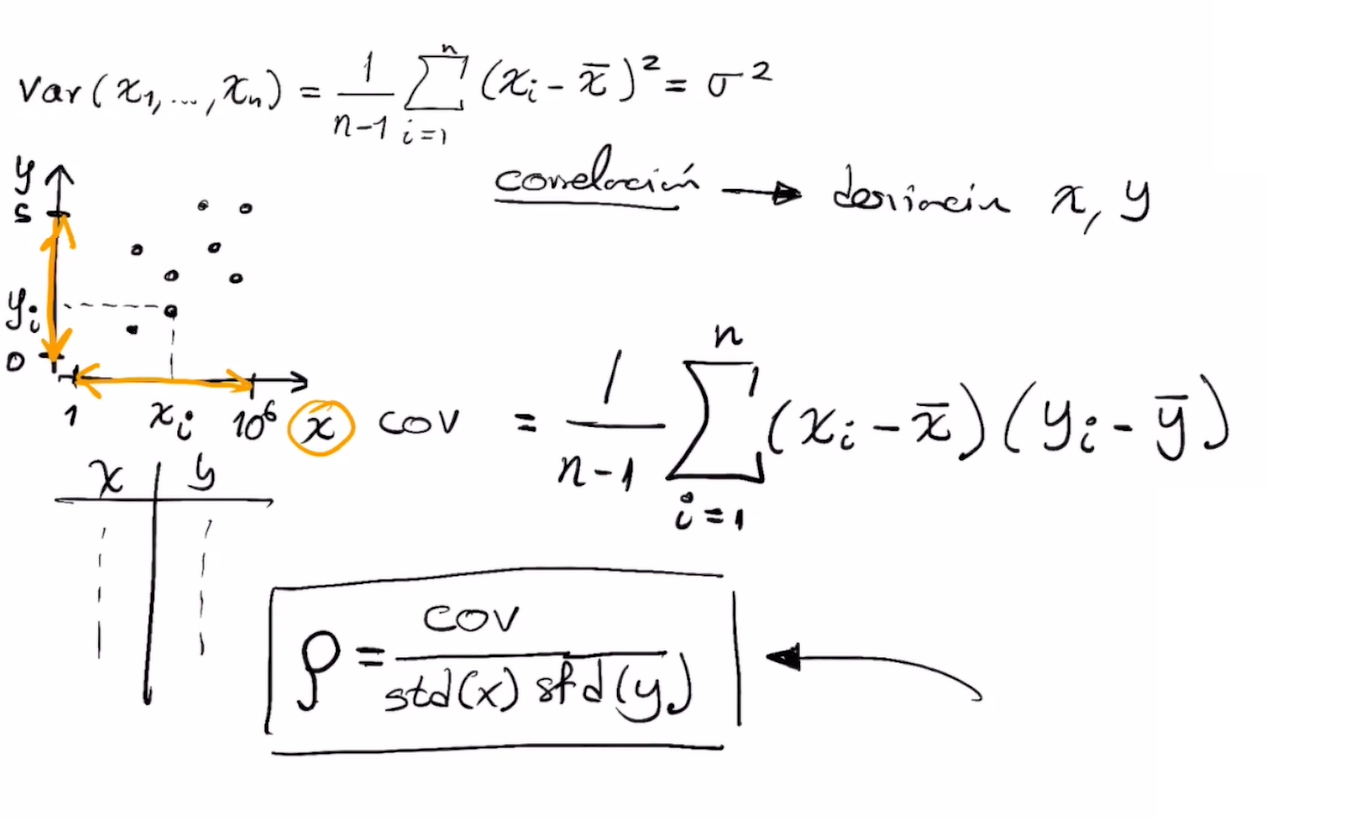 var(x₁, ..., xₙ) = 1/(n-1) Σᵢ₌₁ⁿ (xᵢ - x̄)² = σ²
correlación → desviación x, y
y
5
yᵢ
0
1 xᵢ 10⁶ x
cov = 1/(n-1) Σᵢ₌₁ⁿ (xᵢ - x̄)(yᵢ - ȳ)
x y
ρ = cov / (std(x) std(y))